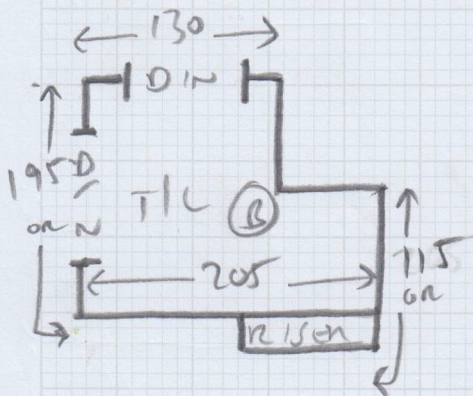 130
D IN
195 D
/
OR N
T/C
B
205
115
OR
RISER